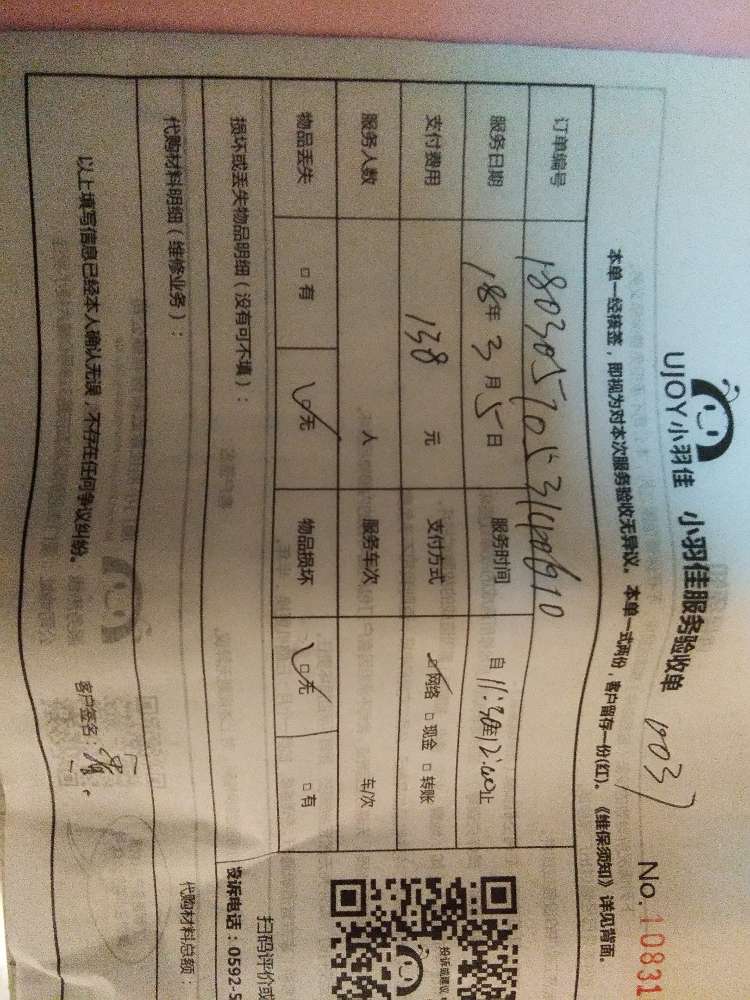 UJOY小羽佳 小羽佳服务验收单 No.10831
本单一经接签，即视为对本次服务验收无异议。本单一式两份，客户留存一份(红)。《维保须知》详见背面。
订单编号
服务日期 18年3月5日 服务时间 自11:30至12:00止
支付费用 138 元 支付方式 网络 现金 转账
服务人数 人 服务车次 车/次
物品丢失 有 无 物品损坏 无 有
损坏或丢失物品明细（没有可不填）：
代购材料明细（维修业务）： 代购材料总额：
以上填写信息已经本人确认无误，不存在任何争议纠纷。 客户签名：
投诉或建议
扫码评价或
投诉电话：0592-5